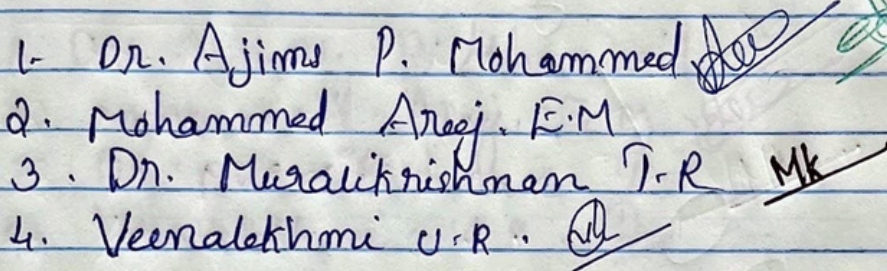 1- Dr. Ajims P. Mohammed
2. Mohammed Areej. E.M
3. Dr. Muralikrishnan T.R Mk
4. Veenalekhmi U.R..